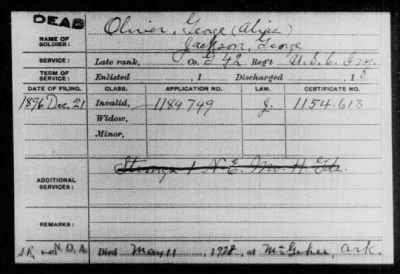 DEAD
NAME OF SOLDIER: Oliver, George (Alias)
Jackson, George
SERVICE: Late rank, Co. G 42 Reg't U.S.C. Inf.
TERM OF SERVICE: Enlisted , 1 Discharged , 1
DATE OF FILING. CLASS. APPLICATION NO. LAW. CERTIFICATE NO.
1896 Dec. 21 Invalid, 1184749 J. 1154.613
Widow,
Minor,
ADDITIONAL SERVICES:
REMARKS:
N.D.A.
Died May 11, 1928, at McGehee, Ark.